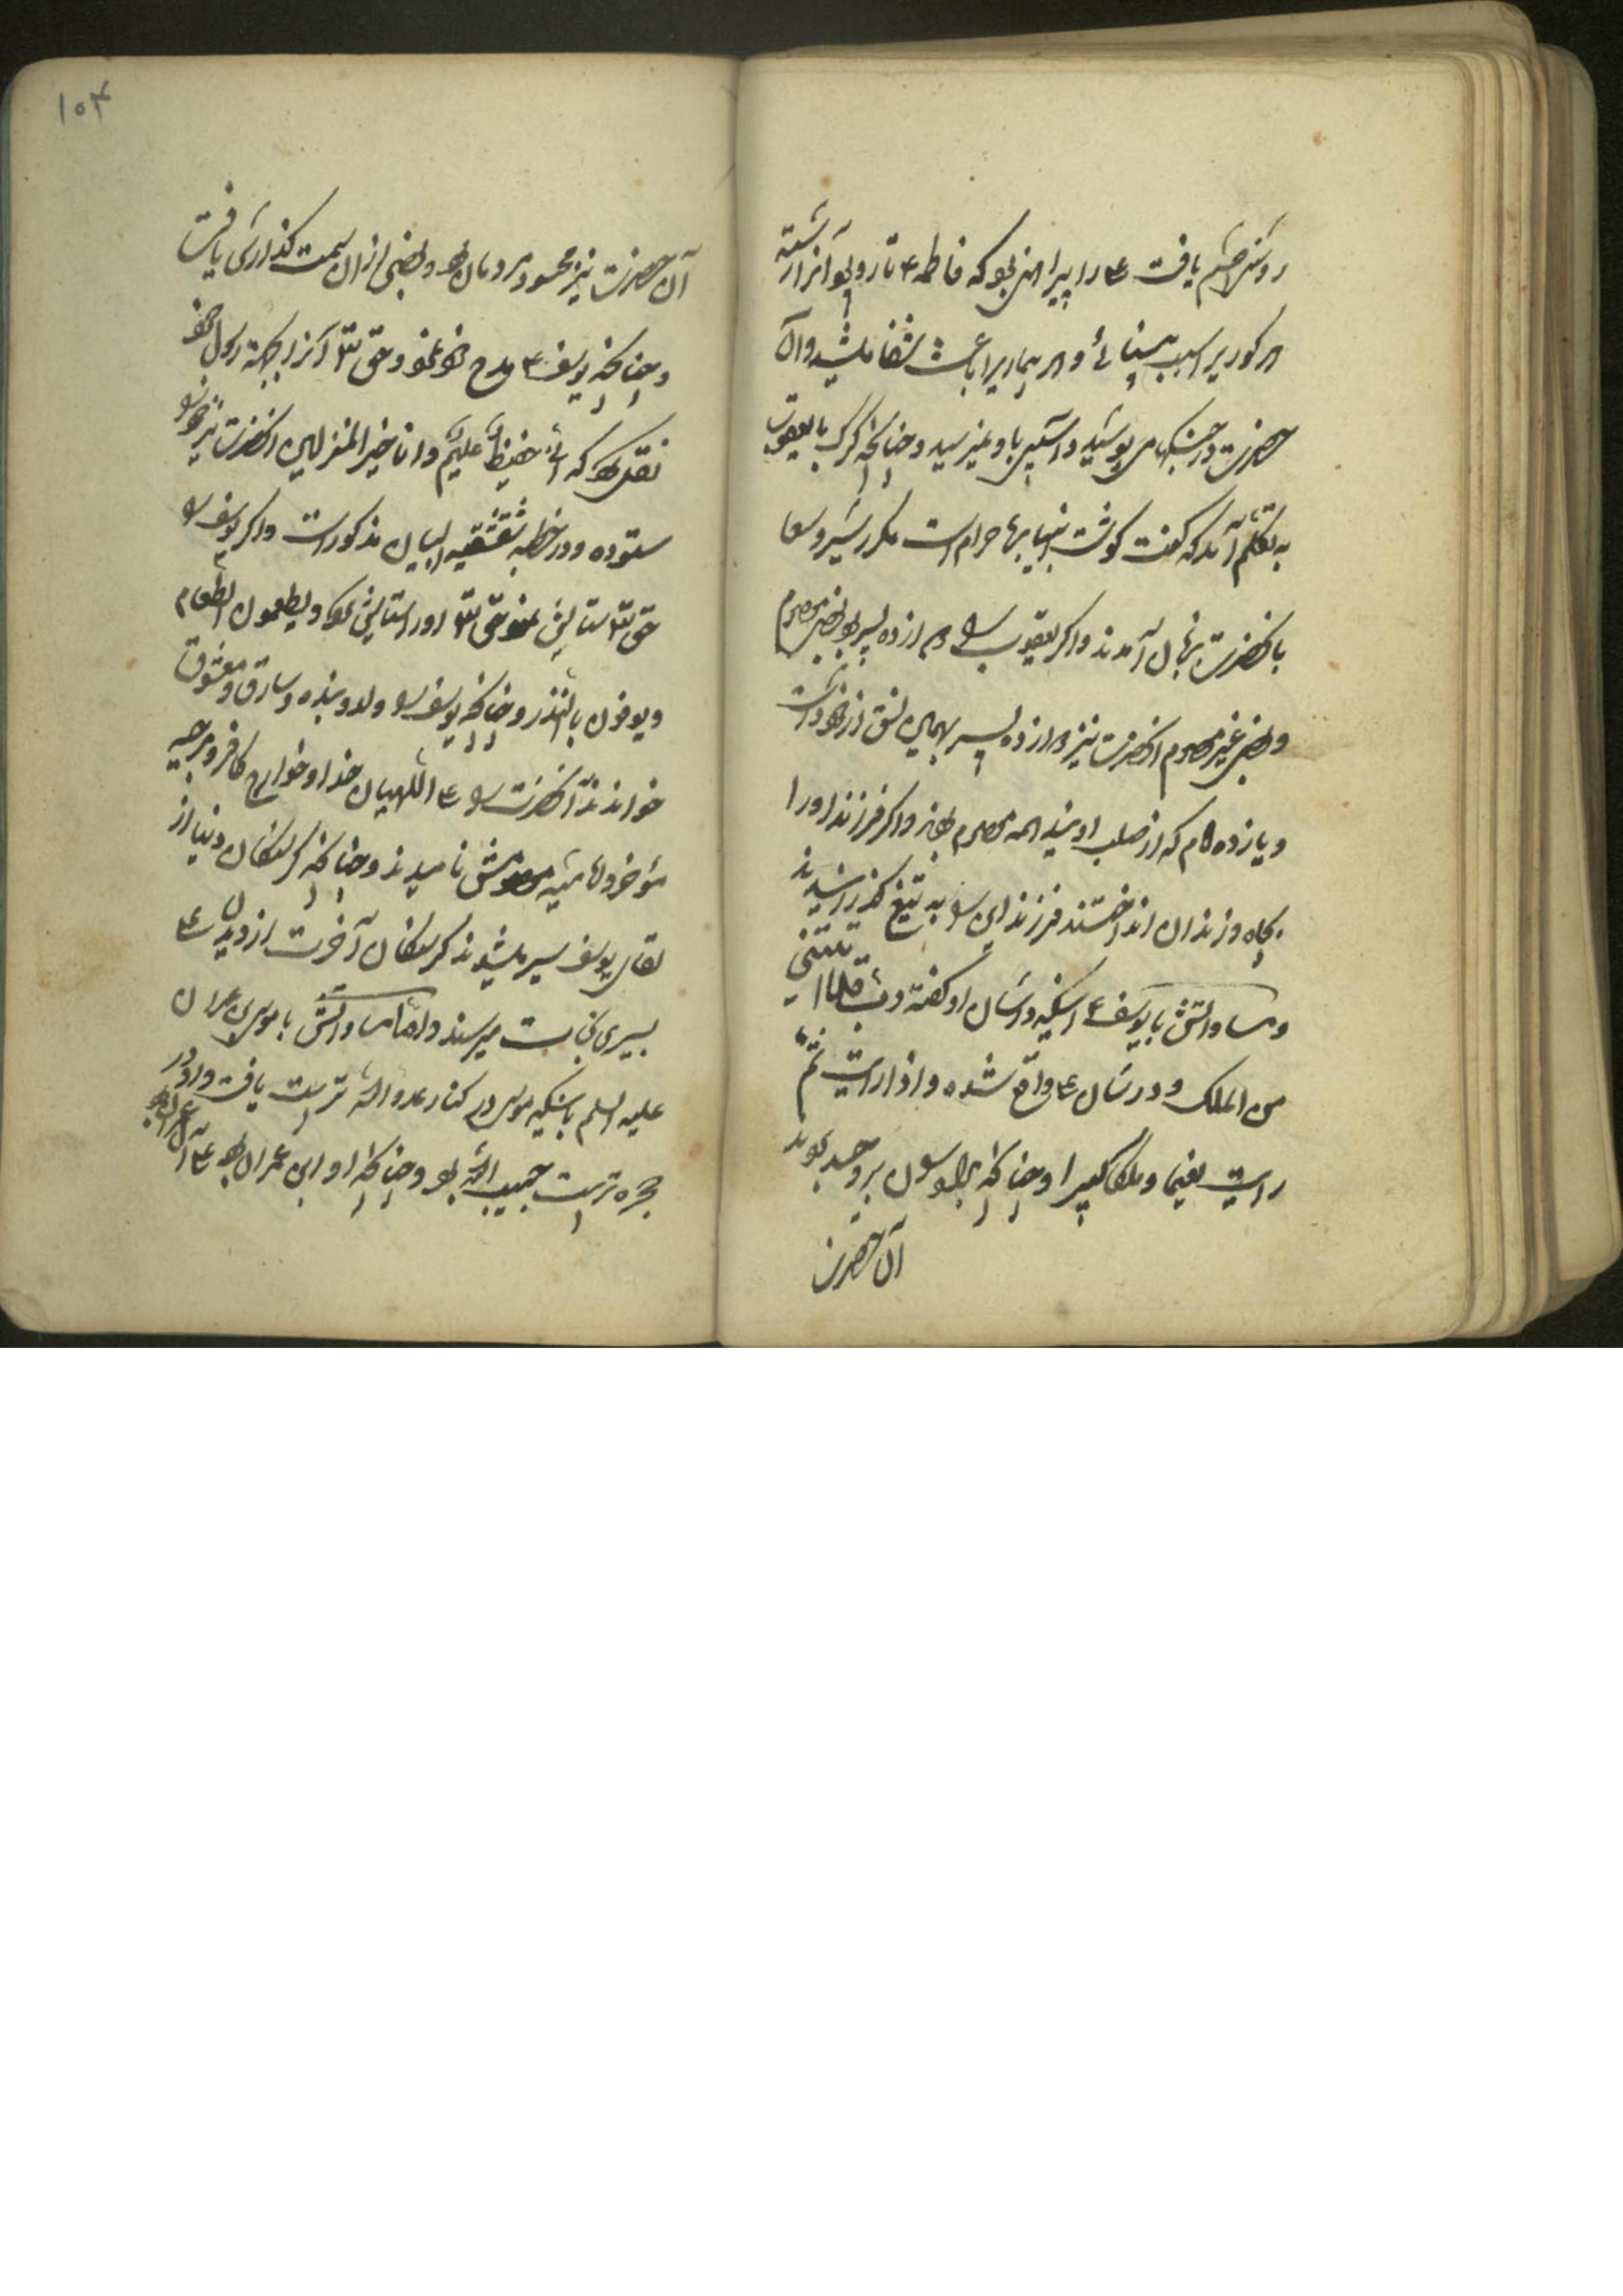 روشنی چشم یافت ع را پیراهنی بود که فاطمه ع تار و پود آنرا رشته
هر کوریرا سبب بینائی و هر بیماریرا باعث شفا میشد و آن
حضرت در جنگها می پوشید و آسیبی باو نمیرسید و چنانچه گرگ با یعقوب
به تکلم آمد که گفت گوشت انبیا بر ما حرام است مکرر شیر و
با آنحضرت بزبان آمدند و اگر یعقوب را دوازده پسر بود بعضی معصوم
و بعضی غیر معصوم آنحضرت نیز دوازده پسر بهمین نسق از خود داشت
و یازده امام که از صلب اویند همه معصوم بودند و اگر فرزند او را
بچاه و زندان انداختند فرزند این را به تیغ گذرانیدند
و مساواتش با یوسف ع اینکه در شان او گفته رب قد اتیتنی
من الملک و در شان ع واقع شده و اذا رایت ثم
رایت نعیما و ملکا کبیرا و چنانکه برادران بر وی حسد بردند
آن حضرت
۱۰۴
آن حضرت نیز محسود مردمان بود و بعضی از آن سمت گذارش یافت
و چنانچه یوسف ع مدح خود نمود و حق تعالی آنرا بجهة رسول خود
نقل کرد که انی حفیظ علیم و انا خیر المنزلین آنحضرت نیز خود را
ستوده و در خطبه شقشقیه البیان مذکور است و اگر یوسف را
حق تعالی ستایش نمود حق تعالی او را ستایش نمود و یطعمون الطعام
و یوفون بالنذر و چنانکه یوسف را ولد و بنده و سارق و معشوق
خواندند آنحضرت را ع اللهیان خدا و خوارج کافر و مرجیه
مؤخر و نامیدند و چنانکه گرسنگان دنیا از
لقای یوسف سیر میشدند گرسنگان آخرت از دیدن ع
بسیری نجات میرسند و اما مساواتش با موسی بن عمران
علیه السلم باینکه موسی در کنار عدو الله تربیت یافت و او در
حجره تربیت حبیب الله بود و چنانکه او ابن عمران بود ع آل عمران بود